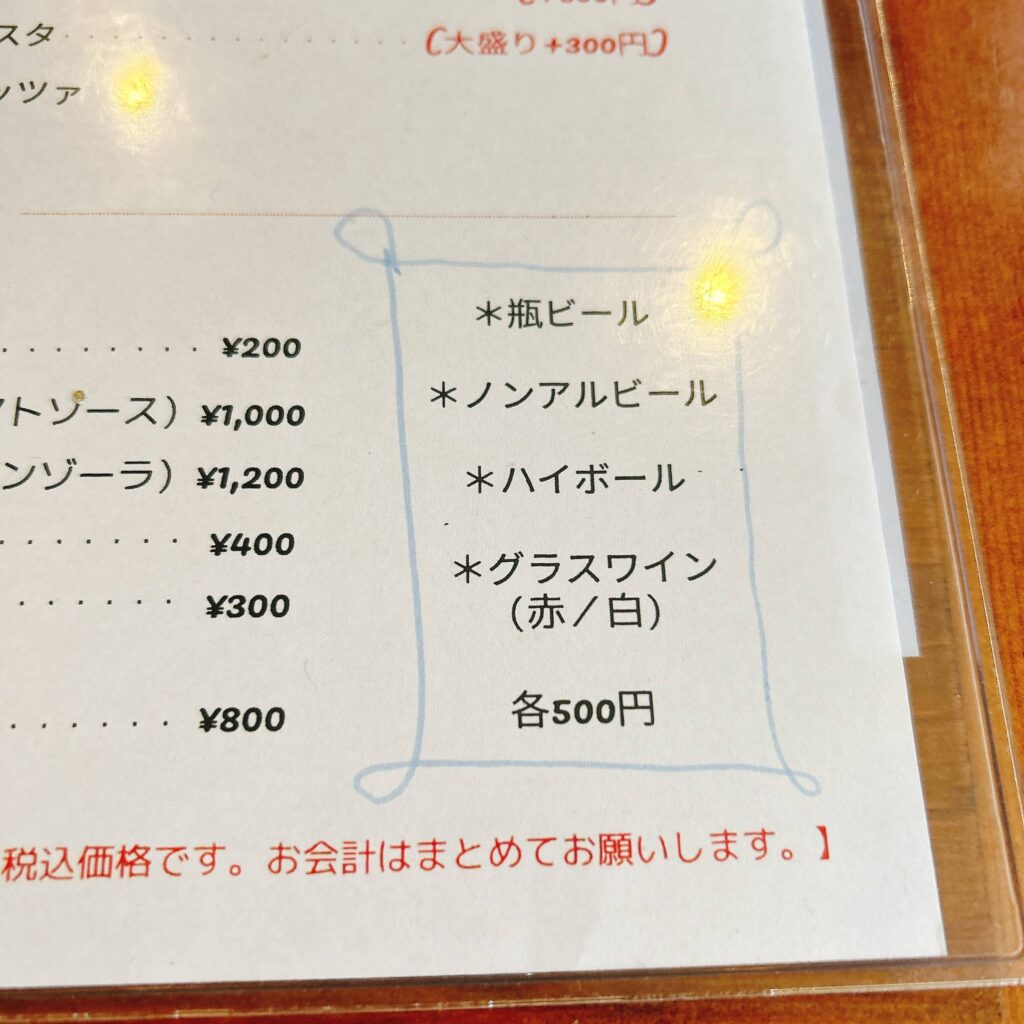 スタ
(大盛り+300円)
ッツァ
¥200
トソース) ¥1,000
ンゾーラ) ¥1,200
¥400
¥300
¥800
*瓶ビール
*ノンアルビール
*ハイボール
*グラスワイン
(赤/白)
各500円
税込価格です。お会計はまとめてお願いします。】